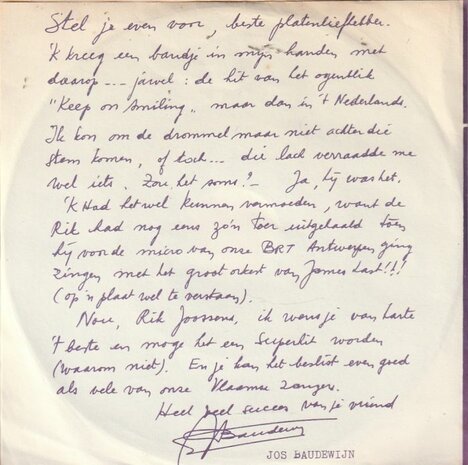 Stel je even voor, beste platenliefhebber.
'K kreeg een bandje in mijn handen met
daarop --- jawel : de hit van het ogenblik
"Keep on smiling" maar dan in 't Nederlands.
Ik kon om de drommel maar niet achter die
stem komen, of toch... die lach verraadde me
wel iets. Zou het soms?- Ja, hij was het.
'K Had het wel kunnen vermoeden, want de
Rik had nog eens zo'n toer uitgehaald toen
hij voor de micro van onze BRT Antwerpen ging
zingen met het groot orkest van James Last!!!
(op 'n plaat wel te verstaan).
Nou, Rik Joossens, ik wens je van harte
't beste en moge het een superhit worden
(waarom niet). En je kan het beslist even goed
als vele van onze Vlaamse zangers.
Heel veel succes van je vriend
J Baudewijn
JOS BAUDEWIJN